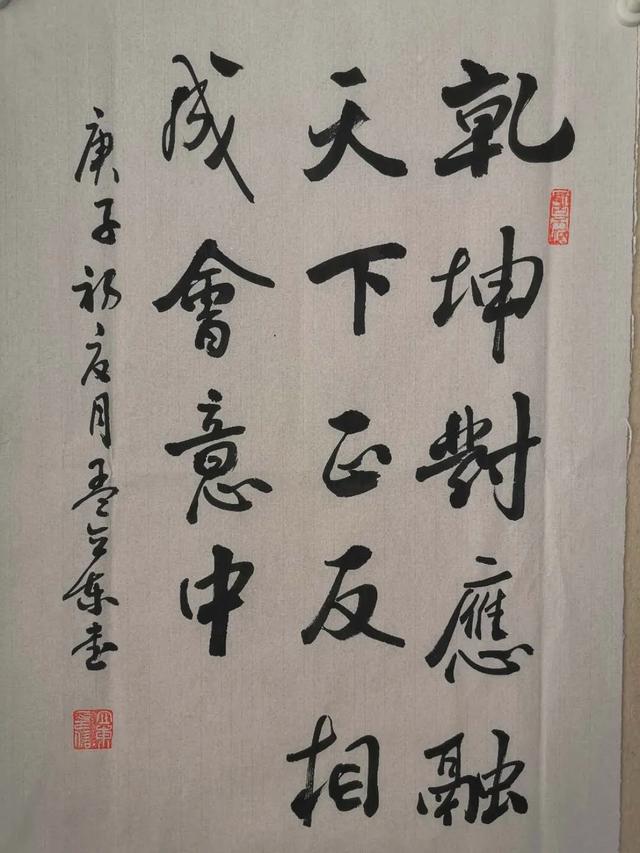 乾坤對應融
天下正反相
成會意中
庚子初夏月孟合東書